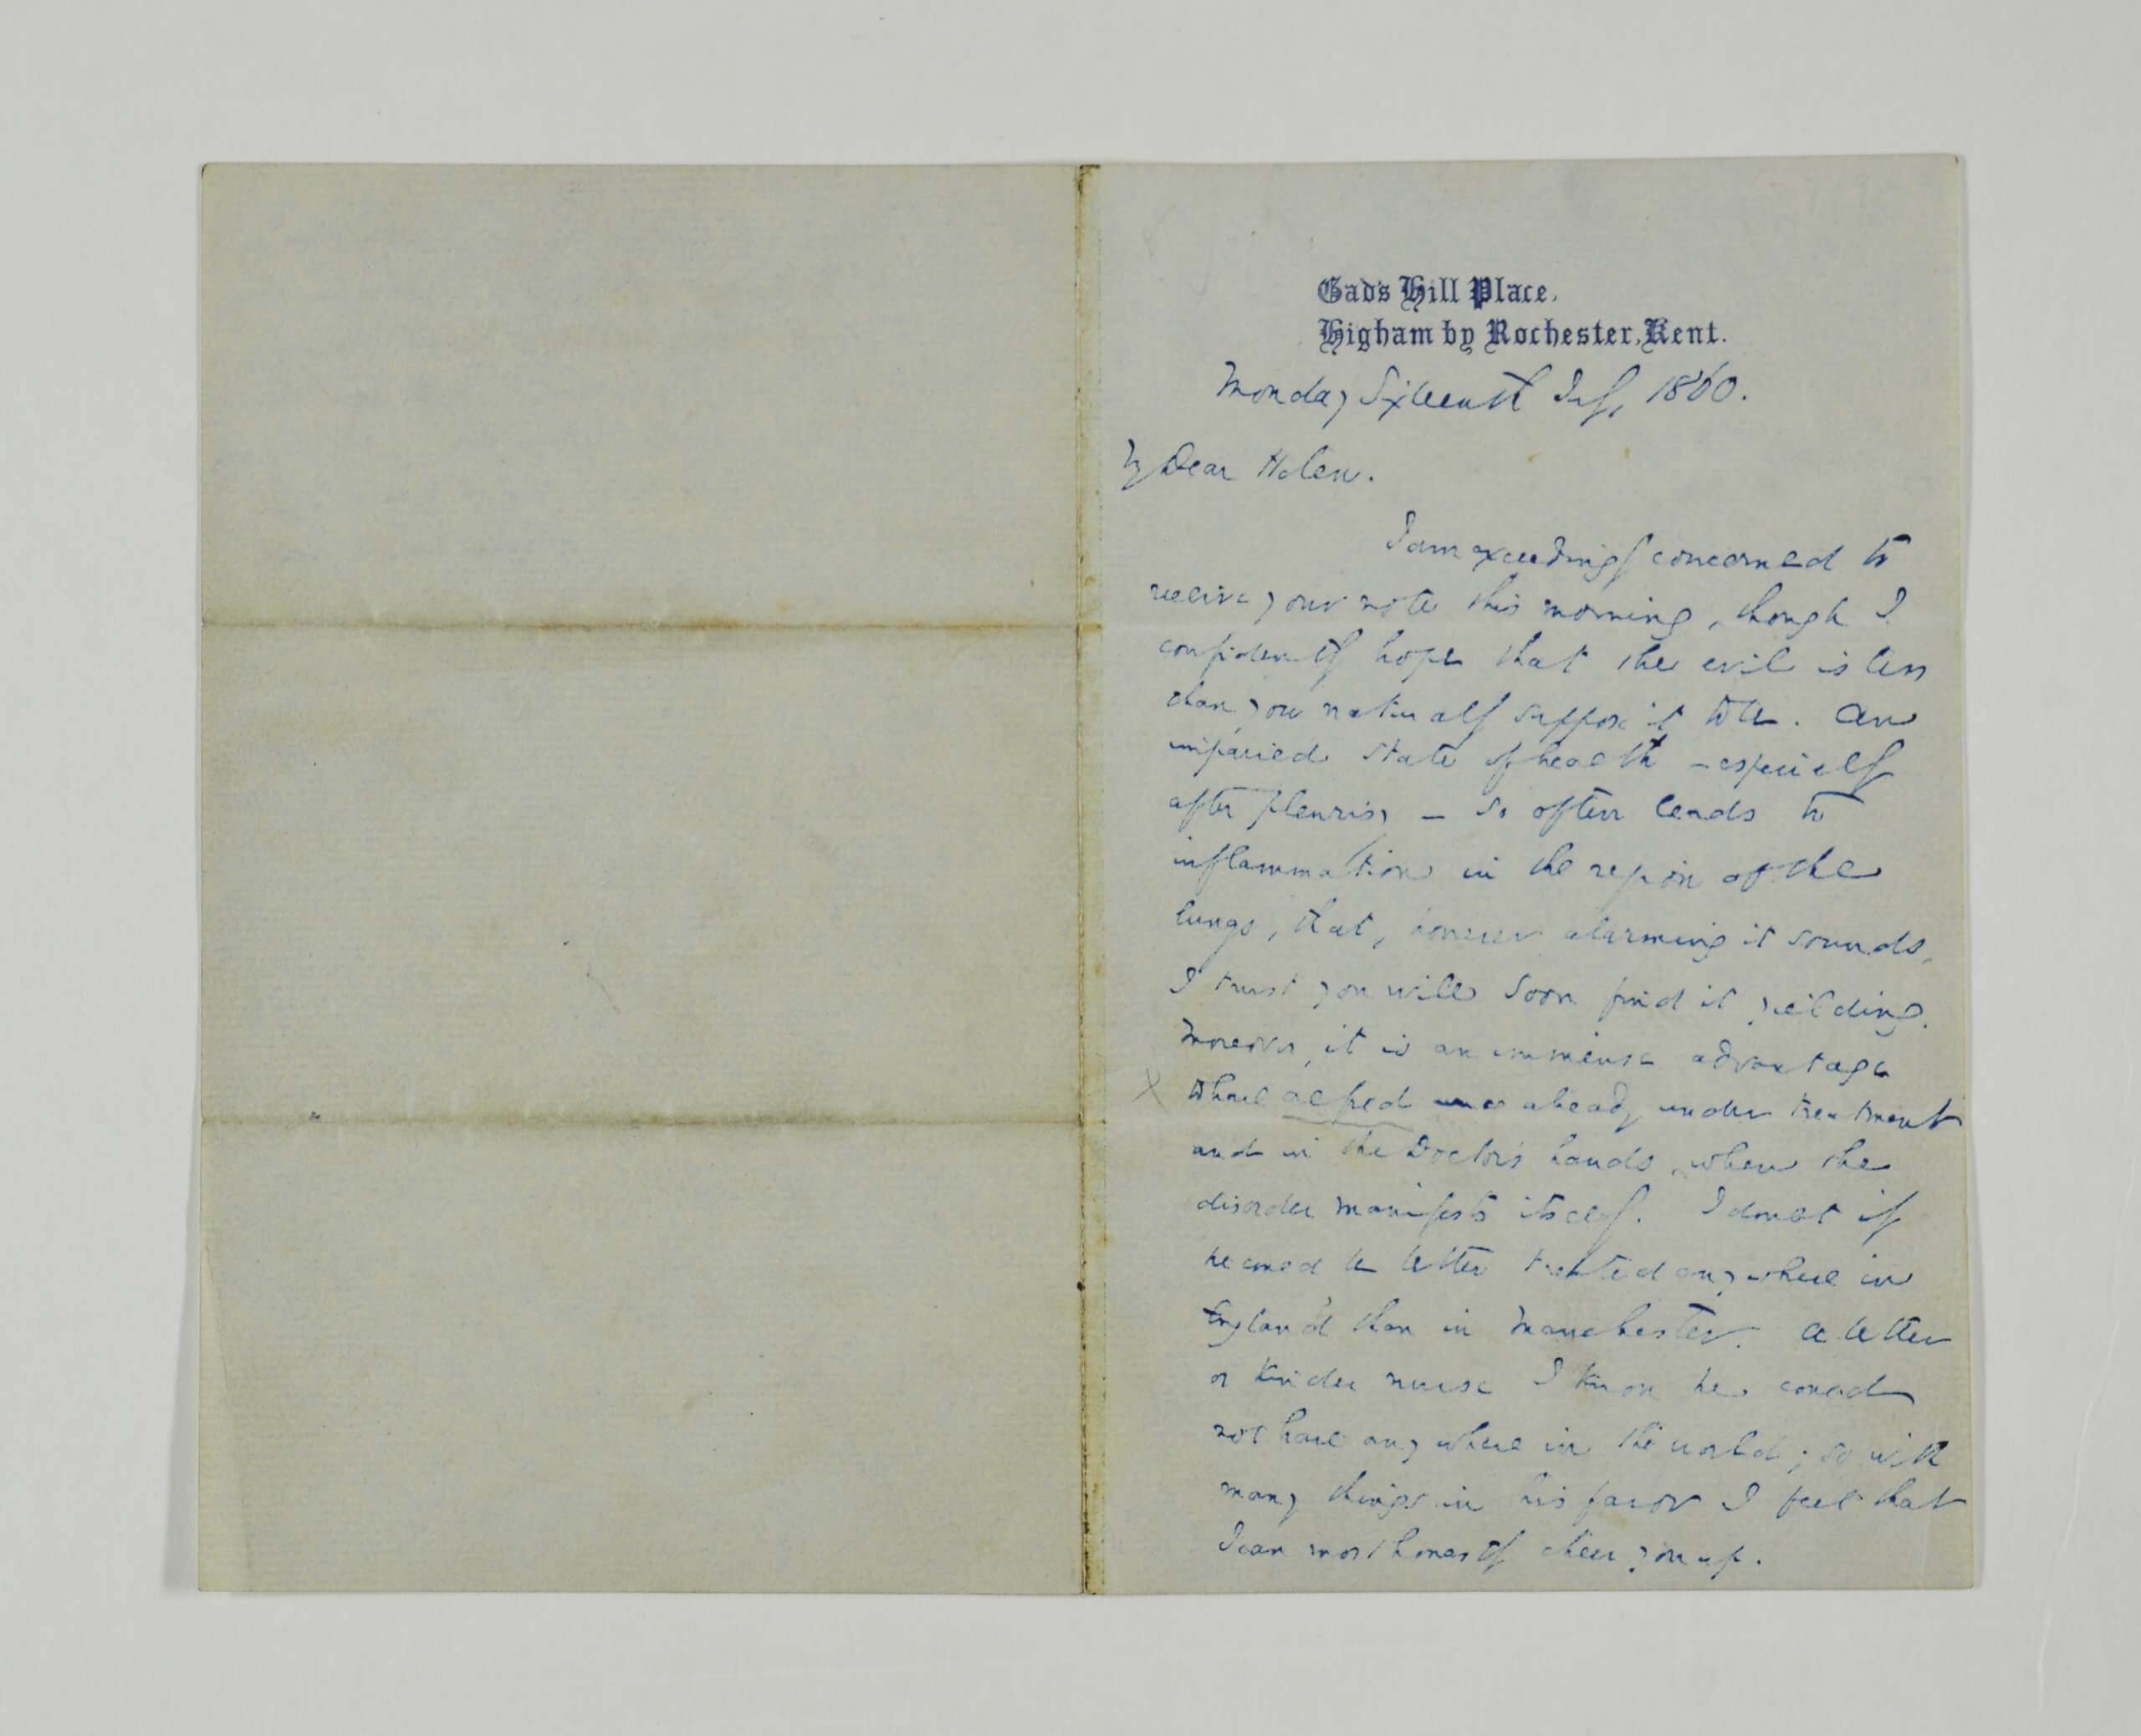 Gad's Hill Place,
Higham by Rochester, Kent.
Monday Sixteenth July, 1860.
My Dear Helen.
I am exceedingly concerned to
receive your note this morning, though I
confidently hope that the evil is less
than you naturally suppose it to be. An
impaired state of health – especially
after pleurisy – so often leads to
inflammation in the region of the
lungs, that, however alarming it sounds,
I trust you will soon find it yeilding.
Moreover, it is an immense advantage
X to have Alfred already under treatment
and in the Doctor's hands, when the
disorder manifests itself. I doubt if
he could be better treated anywhere in
England than in Manchester. A better
or kinder nurse I know he could
not have anywhere in the world; so with
many things in his favor I feel that
I can most honestly cheer you up.